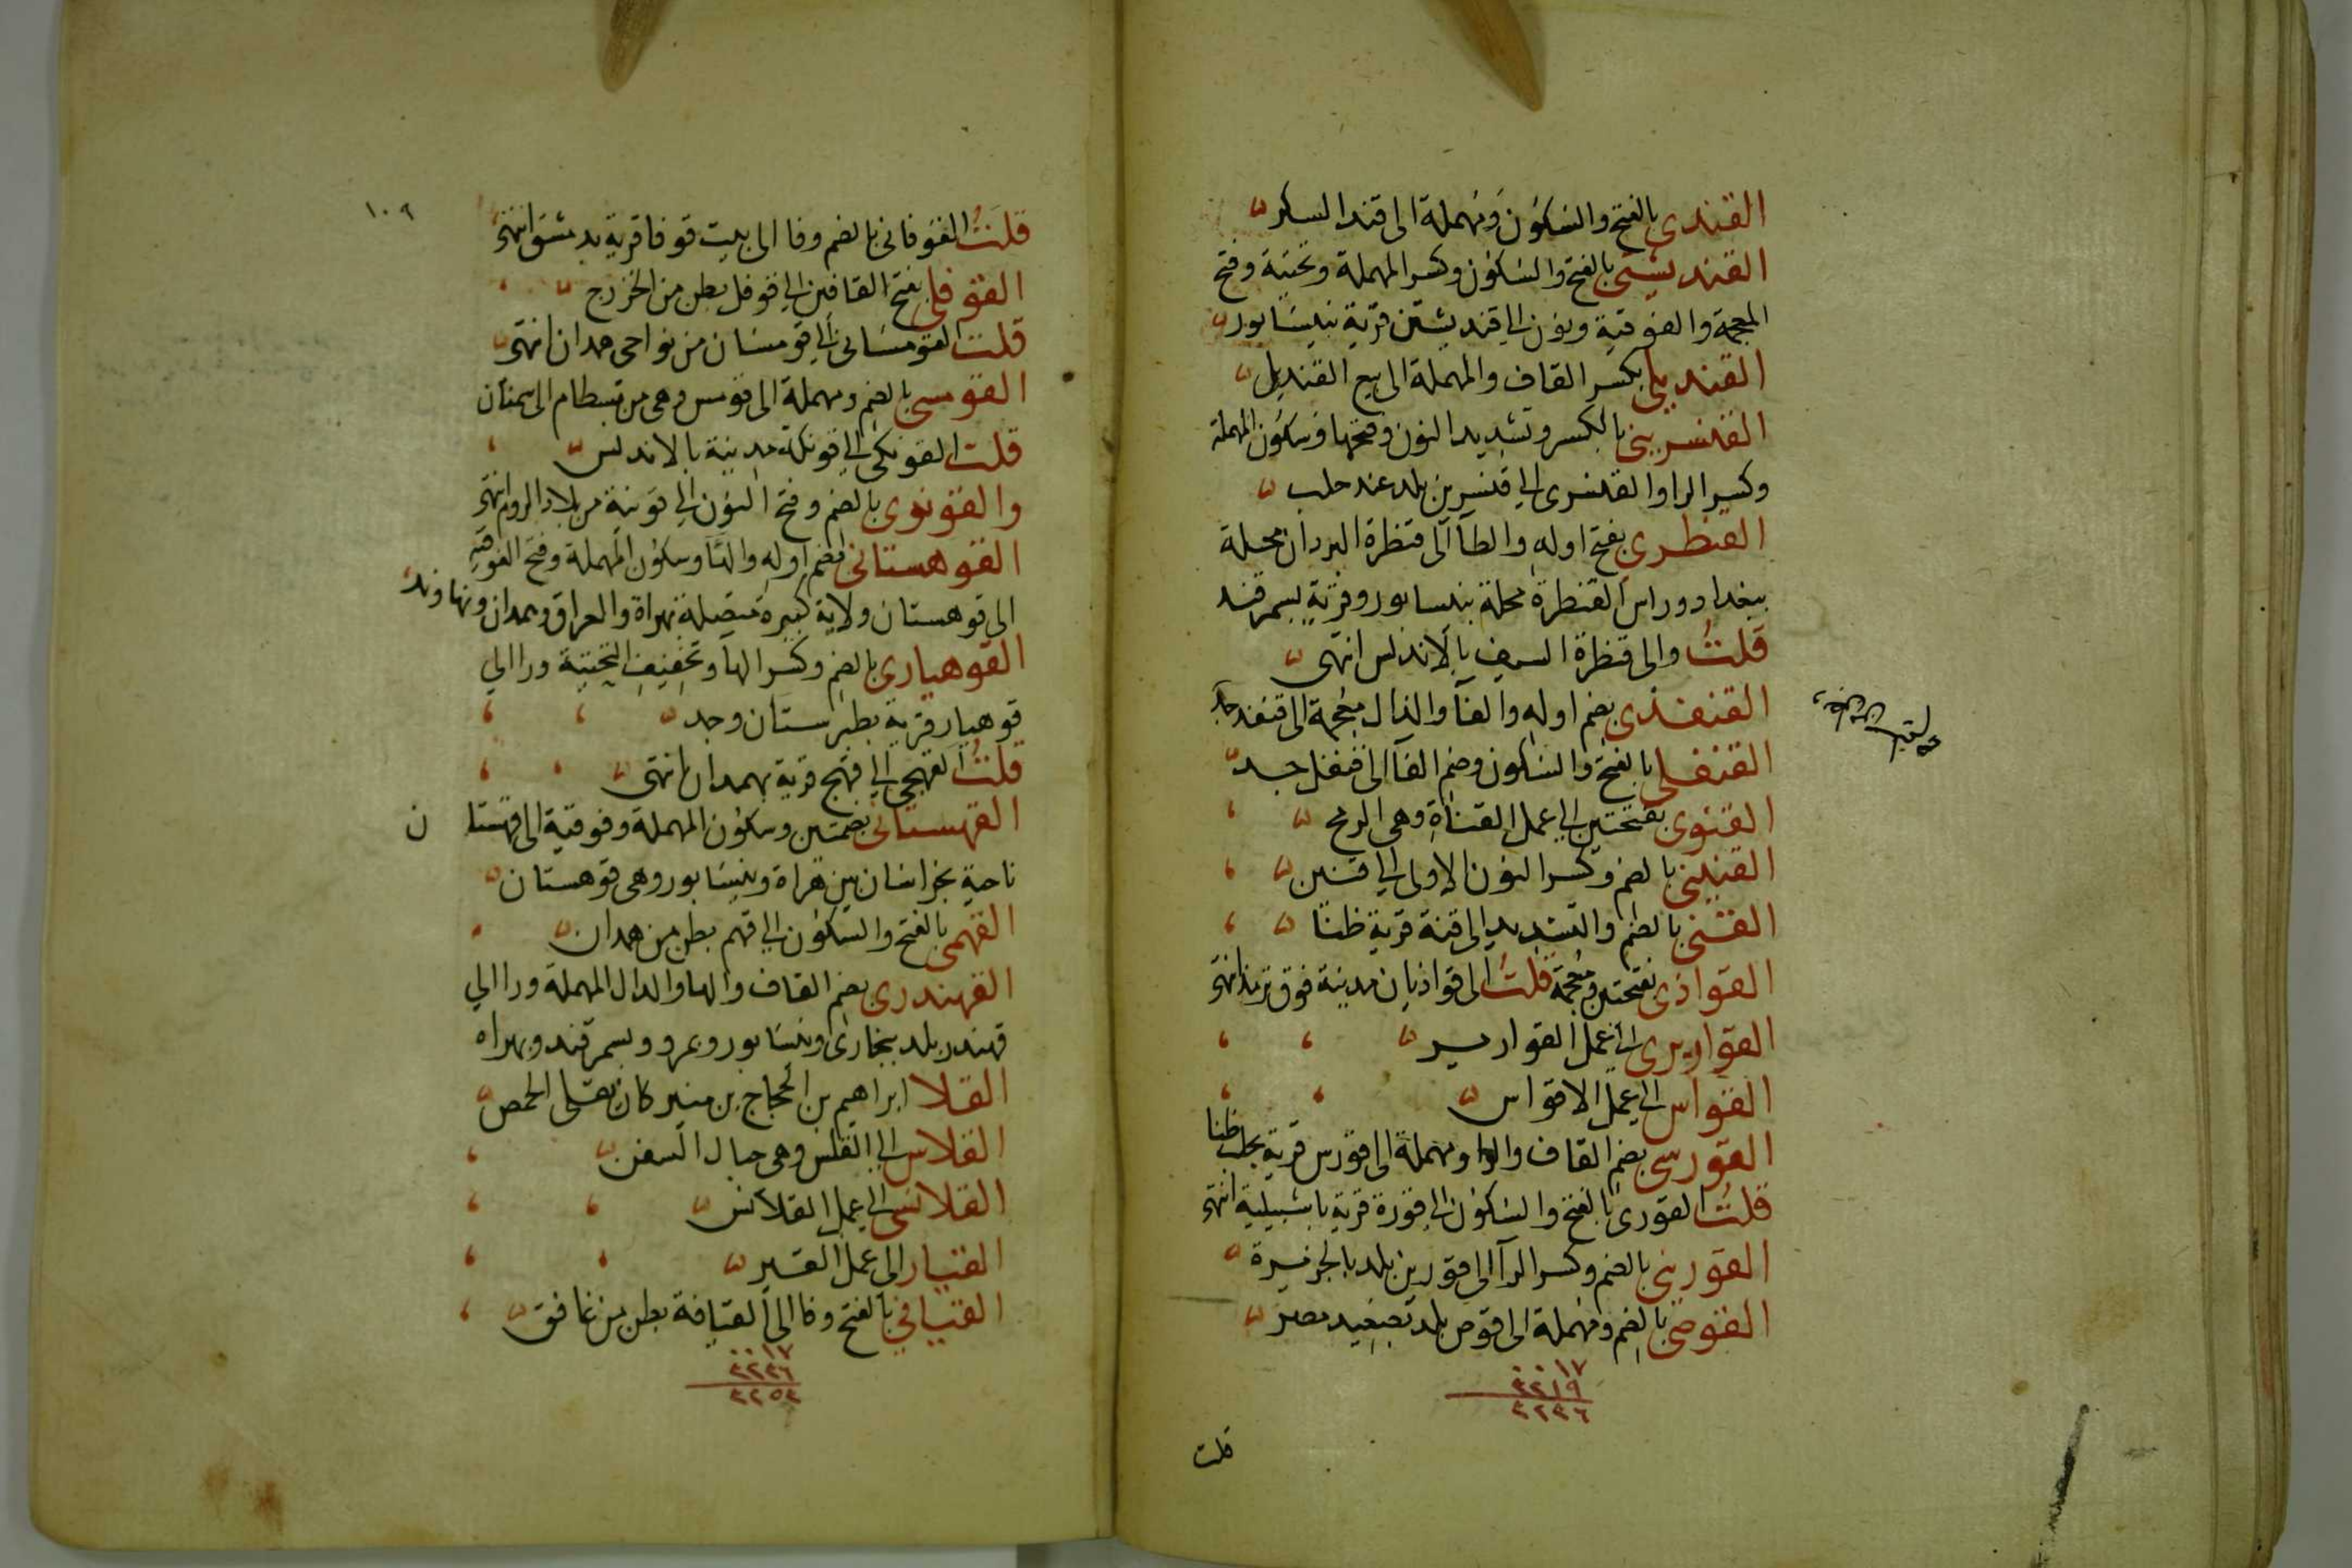 القندى بالفتح والسكون ومهملة الى قند السكر
القنديشتى بالفتح والسكون وكسر المهملة وتحتية وفتح
المعجمة والفوقية ونون الى قنديشتن قرية بنيسابور
القنديلى بكسر القاف والمهملة الى بيع القنديل
القنسرينى بالكسر وتشديد النون وفتحها وسكون المهملة
وكسر الرا والقنسرى الى قنسرين بلد عند حلب
القنطرى بفتح اوله والطآ الى قنطرة البردان محلة
ببغداد وراس القنطرة محلة بنيسابور وقرية بسمرقند
قلت والى قنطرة السيف بالاندلس انتهى
القنفذى بضم اوله والفآ والذال معجمة الى قنفذ جد
القنفلى بالفتح والسكون وضم الفآ الى قنفل جد
القنوى بفتحتين الى عمل القناة وهى الرمح
القنينى بالضم وكسر النون الاولى الى قنين
القنى بالضم والتشديد الى قنة قرية ظنا
القواذى بفتحتين ومعجمة قلت الى قواذيان مدينة فوق ترمذ انتهى
القواريرى الى عمل القوارير
القواس الى عمل الاقواس
القورسى بضم القاف والرا ومهملة الى قورس قرية بحلب ظنا
قلت القورى بالفتح والسكون الى قورة قرية باشبيلية انتهى
القورينى بالضم وكسر الرآ الى قورين بلد بالجزيرة
القوصى بالضم ومهملة الى قوص بلد بصعيد مصر
١٧
٤٢١٩
٤٢٣٦
قلت
١٠٩
قلت القوفانى بالضم وفا الى بيت قوفا قرية بدمشق انتهى
القوقلى بفتح القافين الى قوقل بطن من الخزرج
قلت القومسانى الى قومسان من نواحى همدان انتهى
القومسى بالضم ومهملة الى قومس وهى من بسطام الى سمنان
قلت القونكى الى قونكة مدينة بالاندلس
والقونوى بالضم وفتح النون الى قونية من بلاد الروم انتهى
القوهستانى بضم اوله والها وسكون المهملة وفتح الفوقية
الى قوهستان ولاية كبيرة متصلة بهراة والعراق وهمدان ونهاوند
القوهيارى بالضم وكسر الها وتخفيف التحتية ورا الى
قوهيار قرية بطبرستان وجد
قلت القهجى الى قهج قرية بهمدان انتهى
القهستانى بضمتين وسكون المهملة وفوقية الى قهستان
ناحية بخراسان بين هراة ونيسابور وهى قوهستان
القهمى بالفتح والسكون الى قهم بطن من همدان
القهندرى بضم القاف والها والدال المهملة ورا الى
قهندر بلد ببخارى ونيسابور وبمرو وبسمرقند وبهراه
القلا ابراهيم بن الحجاج بن منير كان يقلى الحمص
القلاس الى القلس وهى حبال السفن
القلانسى الى عمل القلانس
القيار الى عمل القير
القيافى بالفتح وفا الى القيافة بطن من غافق
١٧
٤٢٣٦
٤٢٥٣